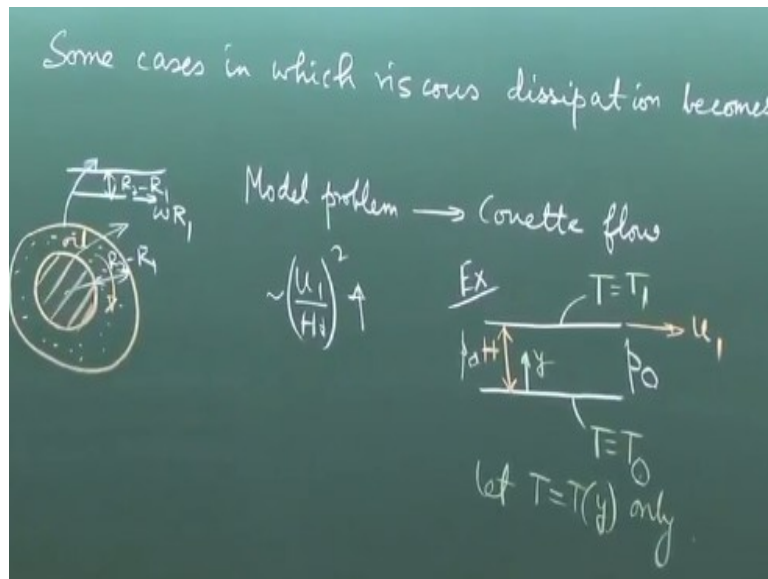 Some cases in which viscous dissipation becomes
R₂-R₁
ωR₁
oil
Model problem → Couette flow
~(u₁/H)² ↑
Ex
T=T₁
u₁
p₀
H
y
p₀
T=T₀
let T=T(y) only.